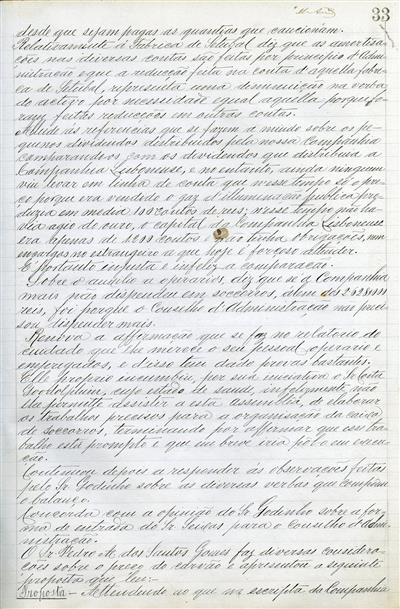 33
desde que sejam pagas as quantias que caucionam.
Relativamente á Fabrica de Setubal diz que as amortisa-
ções nas diversas contas são feitas por principio d'Admi-
nistração e que a reducção feita na conta d'aquella fabri-
ca de Setubal, representa uma diminuição na verba
do activo por necessidade egual aquella porque fo-
ram feitas reducções em outras contas.
Allude ás referencias que se fazem a miudo sobre os pe-
quenos dividendos distribuidos pela nossa Companhia
comparando-os com os dividendos que distribuia a
Companhia Lisbonense, e no entanto, ainda ninguem
viu levar em linha de conta que n'esse tempo só o pre-
ço porque era vendido o gaz d'illuminação publica pro-
duzia em media contos de reis; n'esse tempo não ha-
via agio de ouro, o capital da Companhia Lisbonense
era apenas de contos e não tinha obrigações, nem
encargos no estrangeiro ao que hoje é forçoso attender.
É portanto injusta e infeliz a comparação.
Sobre o auxilio a operarios, diz que se a Companhia
mais não dispendeu em soccorros, alem dos
reis, foi porque o Conselho d'Administração não preci-
sou dispender mais.
Renova a affirmação que se faz no relatorio do
cuidado que lhe merece o seu pessoal operario e
empregados, e d'isso tem dado provas bastantes.
Elle proprio incumbiu, por sua iniciativa o Sr. Costa
cujo estado de saude, infelizmente não
lhe permitte assistir a esta Assembléa, de elaborar
os trabalhos precisos para a organisação da caixa
de soccorros, terminando por affirmar que esse tra-
balho está prompto e que em breve iria pôl-o em execu-
ção.
Continúou depois a responder ás observações feitas
pelo Sr. Godinho sobre as diversas verbas que compõem
o balanço.
Concorda com a opinião do Sr. Godinho sobre a for-
ma de entrada do Sr. para o Conselho d'Admi-
nistração.
O Sr. Pedro A. dos Santos Gomes faz diversas considera-
ções sobre o preço do carvão e apresentou a seguinte
proposta que leu:-
Proposta - Attendendo ao que na escripta da Companhia